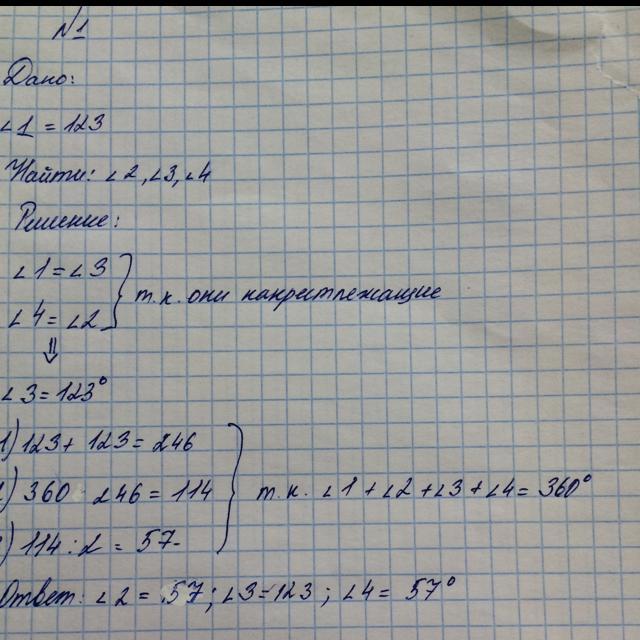 №1
Дано:
∠1 = 123
Найти: ∠2, ∠3, ∠4
Решение:
∠1 = ∠3
∠4 = ∠2
т.к. они накрестлежащие
⇓
∠3 = 123°
1) 123 + 123 = 246
) 360 246 = 114
) 114 : 2 = 57
т.к. ∠1 + ∠2 + ∠3 + ∠4 = 360°
Ответ: ∠2 = 57; ∠3 = 123; ∠4 = 57°